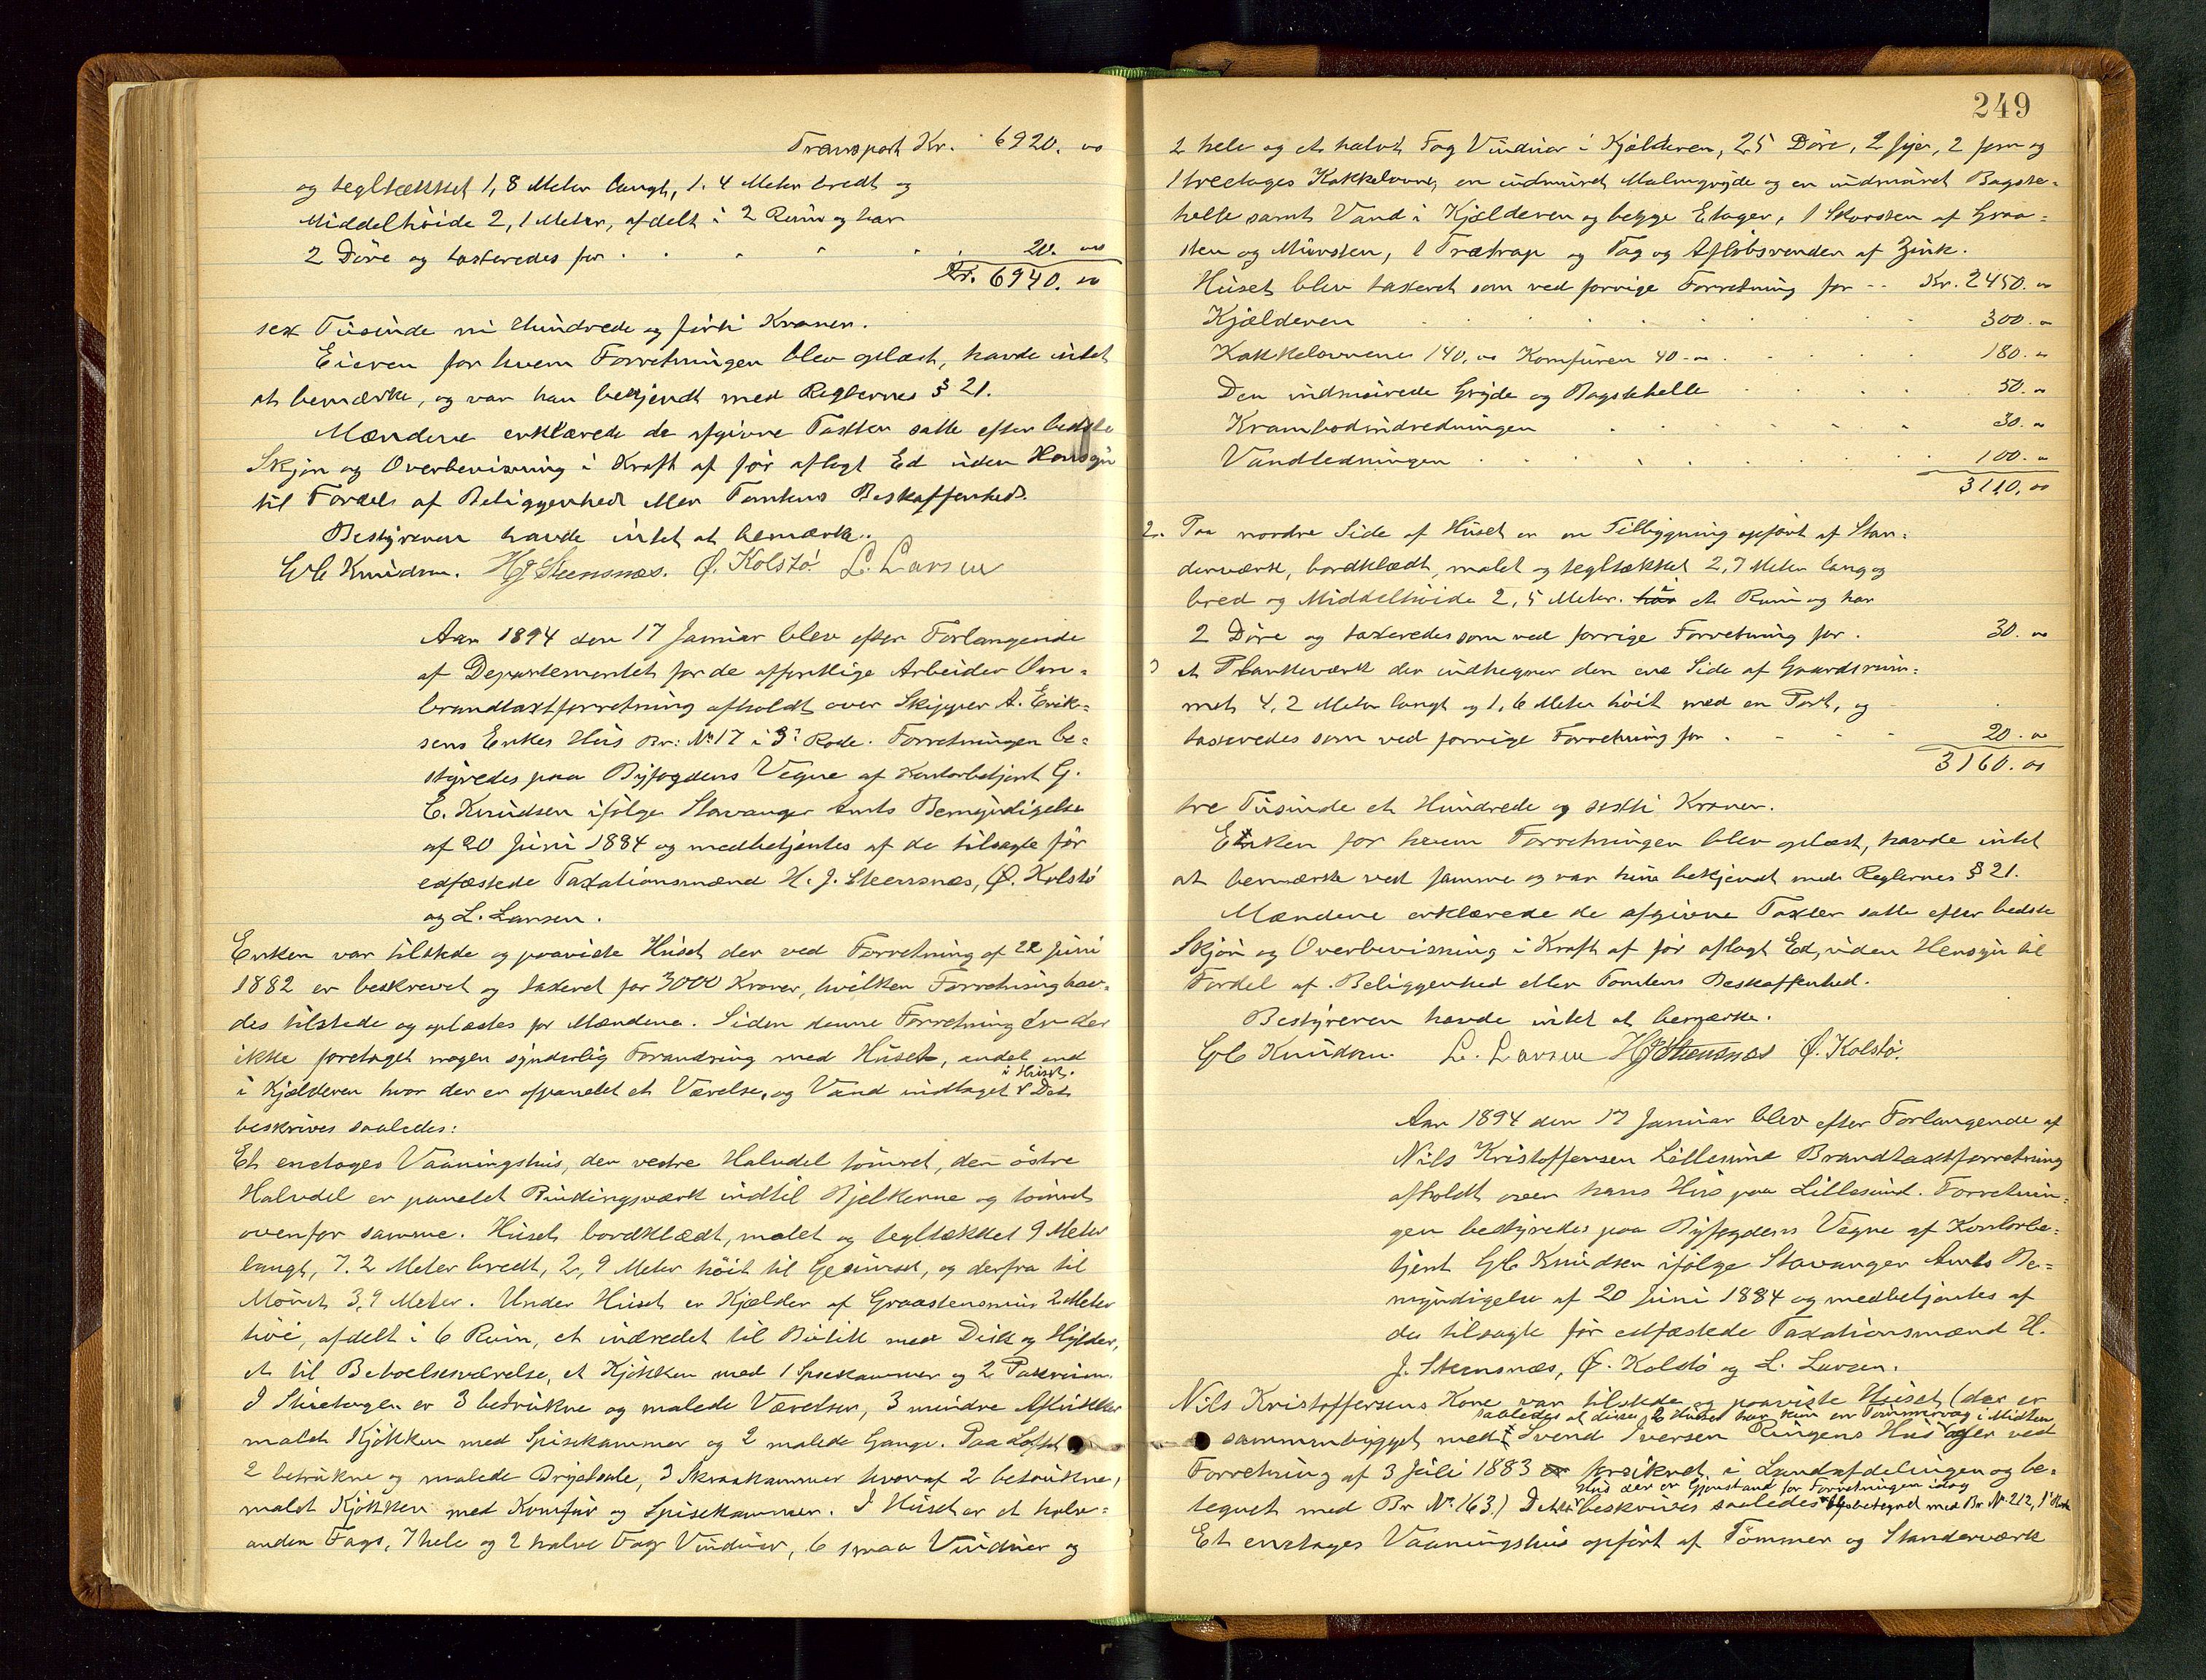 Transport Kr. 6920. 00
og teglsækket 1,8 Meter langt, 1.4 Meter bredt og
Middelhöide 2,1 Meter, afdelt i 2 Rum og har
2 Döre og taxeredes for . . . . . 20. 00
Kr. 6940. 00
sex Tusinde ni Hundrede og förti Kroner.
Eieren for hvem Forretningen blev oplæst, havde intet
at bemærke, og var han bekjendt med Reglernes § 21.
Mændene erklærede de afgivne Taxter satte efter bedste
Skjön og Overbevisning i Kraft af för aflagt Ed uden Hensyn
til Fordel af Beliggenhed eller Tomtens Beskaffenhed.
Bestyreren havde intet at bemærke.
GE Knudsen. HJ Steensnæs. Ö. Kolstö. L. Larsen
Aar 1894 den 17 Januar blev efter Forlangende
af Departementet for de offentlige Arbeider Om-
brandtaxtforretning afholdt over Skipper A. Erik-
sens Enkes Hus Br: No 17 i 3. Rode. Forretningen be-
styredes paa Byfogdens Vegne af Kontorbetjent G.
E. Knudsen ifölge Stavanger Amts Bemyndigelse
af 20 Juni 1884 og medbetjentes af de tilsagte för
edfæstede Taxationsmænd H. J. Steensnæs, Ö. Kolstö
og L. Larsen.
Enken var tilstede og paaviste Huset der ved Forretning af 22 Juni
1882 er beskrevet og taxeret for 3000 Kroner, hvilken Forretning hav-
des tilstede og oplæstes for Mændene. Siden denne Forretning er der
ikke foretaget nogen synderlig Forandring med Huset, andet end
i Kjælderen hvor der er afpanelet et Værelse, og Vand indtaget i Huset. Det
beskrives saaledes:
Et enetages Vaaningshus, den vestre Halvdel tömret, den östre
Halvdel er panelet Bindingsværk indtil Bjelkerne og tömret
ovenfor samme. Huset bordklædt, malet og teglsækket 9 Meter
langt, 7.2 Meter bredt, 2,9 Meter höit til Gesimset, og derfra til
Mönet 3,9 Meter. Under Huset er Kjælder af Graastensmur 2 Meter
höi, afdelt i 6 Rum, et indredet til Butik med Disk og Hylder,
et til Beboelsesværelse, et Kjökken med 1 Spisekammer og 2 Pakrum.
I Stuetagen er 3 betrukne og malede Værelser, 3 mindre Aflukker
malet Kjökken med Spisekammer og 2 malede Gange. Paa Loftet
2 betrukne og malede Brystsale, 3 Skraakammer hvoraf 2 betrukne,
malet Kjökken med Komfur og Spisekammer. I Huset er et halv-
anden Fags, 7 hele og 2 halve Fag Vinduer, 6 smaa Vinduer og
249
2 hele og et halvt Fag Vinduer i Kjælderen, 25 Döre, 2 fyr, 2 fem og
1 treetages Kakkelovne, en indmuret Malmgryde og en indmuret Bagste-
helle samt Vand i Kjælderen og begge Etager, 1 Skorsten af Graa-
sten og Mursten, 1 Trætrap og Tag og Aflöbsrender af Zink.
Huset blev taxeret som ved forrige Forretning for -- Kr. 2450. 00
Kjælderen . . . . . . 300. 00
Kakkelovnene 140. 00 Komfuren 40 - 00 . . . 180. 00
Den indmurede Gryde og Bagstehelle . . . 50. 00
Krambodindredningen . . . . . 30. 00
Vandledningen . . . . . . 100. 00
3110. 00
2. Paa nordre Side af Huset er en Tilbygning opfört af Stan-
derværk, bordklædt, malet og teglsækket 2,7 Meter lang og
bred og Middelhöide 2,5 Meter. har i et Rum og har
2 Döre og taxeredes som ved forrige Forretning for . 30. 00
3 et Plankeværk der indhegner den ene Side af Gaardsrum-
met 4,2 Meter langt og 1,6 Meter höit med en Port, og
taxeredes som ved forrige Forretning for . . . 20. 00
3160. 00
tre Tusinde et Hundrede og sexti Kroner.
Enken for hvem Forretningen blev oplæst, havde intet
at bemærke ved samme og var hun bekjendt med Reglernes § 21.
Mændene erklærede de afgivne Taxter satte efter bedste
Skjön og Overbevisning i Kraft af för aflagt Ed, uden Hensyn til
Fordel af Beliggenhed eller Tomtens Beskaffenhed.
Bestyreren havde intet at bemærke.
GE Knudsen. L. Larsen HJ Steensnæs Ö. Kolstö.
Aar 1894 den 17 Januar blev efter Forlangende af
Nils Kristoffersen Lillesund Brandtaxtforretning
afholdt over hans Hus paa Lillesund. Forretnin-
gen bestyredes paa Byfogdens Vegne af Kontorbe-
tjent GE Knudsen ifölge Stavanger Amts Be-
myndigelse af 20 Juni 1884 og medbetjentes af
de tilsagte för edfæstede Taxationsmænd H.
J. Steensnæs, Ö. Kolstö og L. Larsen.
Nils Kristoffersens Kone var tilstede og paaviste Huset (der er
saaledes at disse 2 Huse har kun en Tömmervæg i Midten
sammenbygget med Svend Iversen Ringens Hus og er ved
Forretning af 3 Juli 1883 forsikret i Landafdelingen og be-
Hus der er Gjenstand for Forretningen idag
tegnet med Br No. 163.) Dette beskrives saaledes betegnet med Br. No. 212, 1
Et enetages Vaaningshus opfört af Tömmer og Standerværk